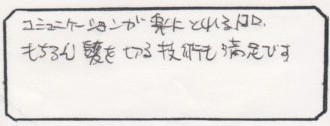 コミュニケーションが楽にとれる店。
もちろん髪を切る技術も満足です